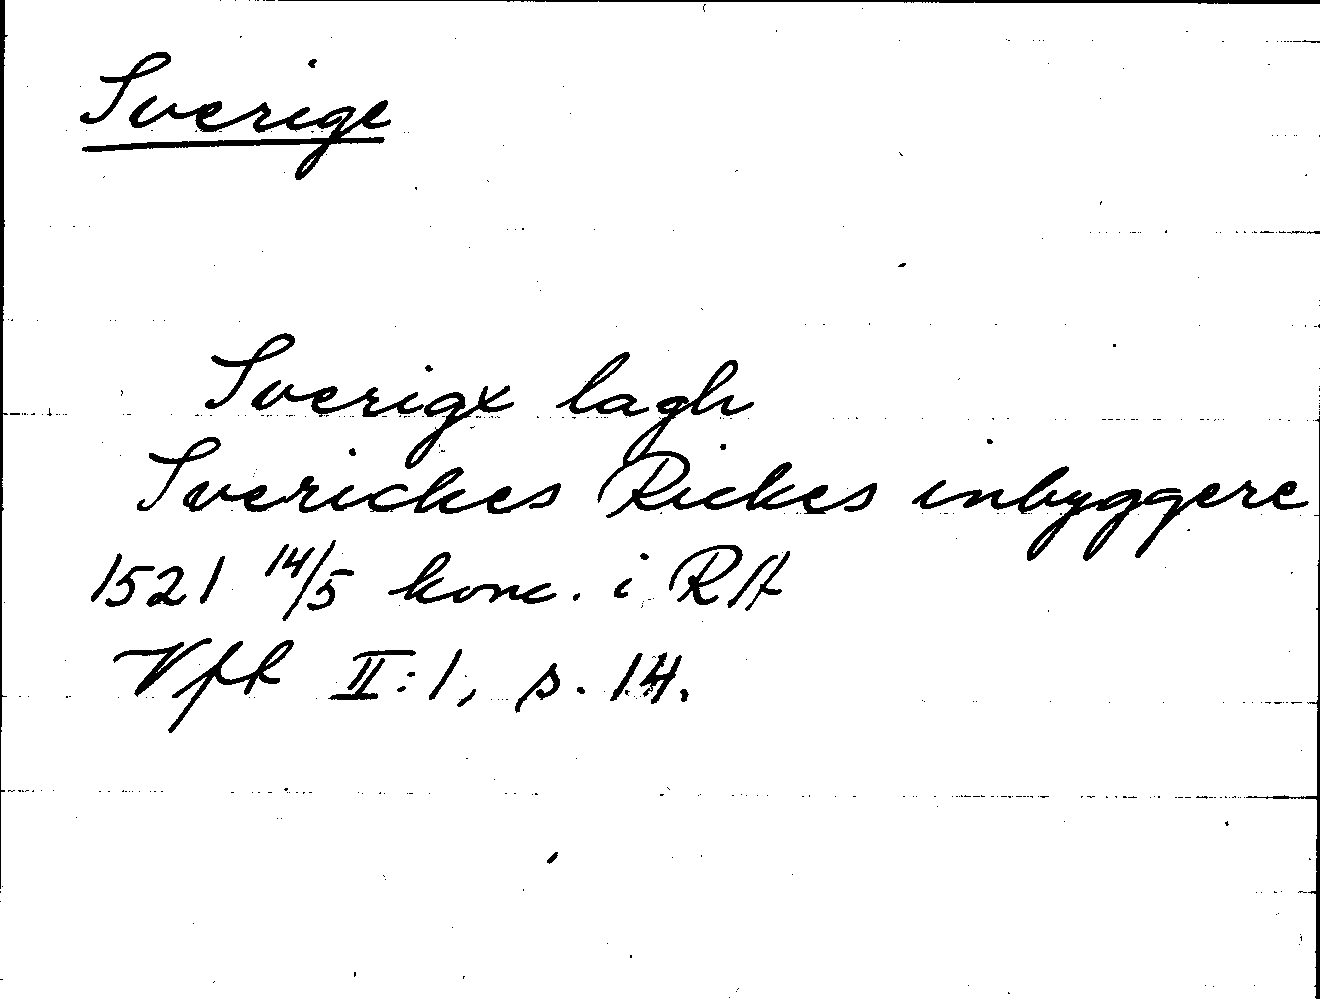 Sverige
Sverigx lagh
Sverickes Rickes inbyggere
1521 14/5 konc. i RA
Vfk II:1, s. 14.